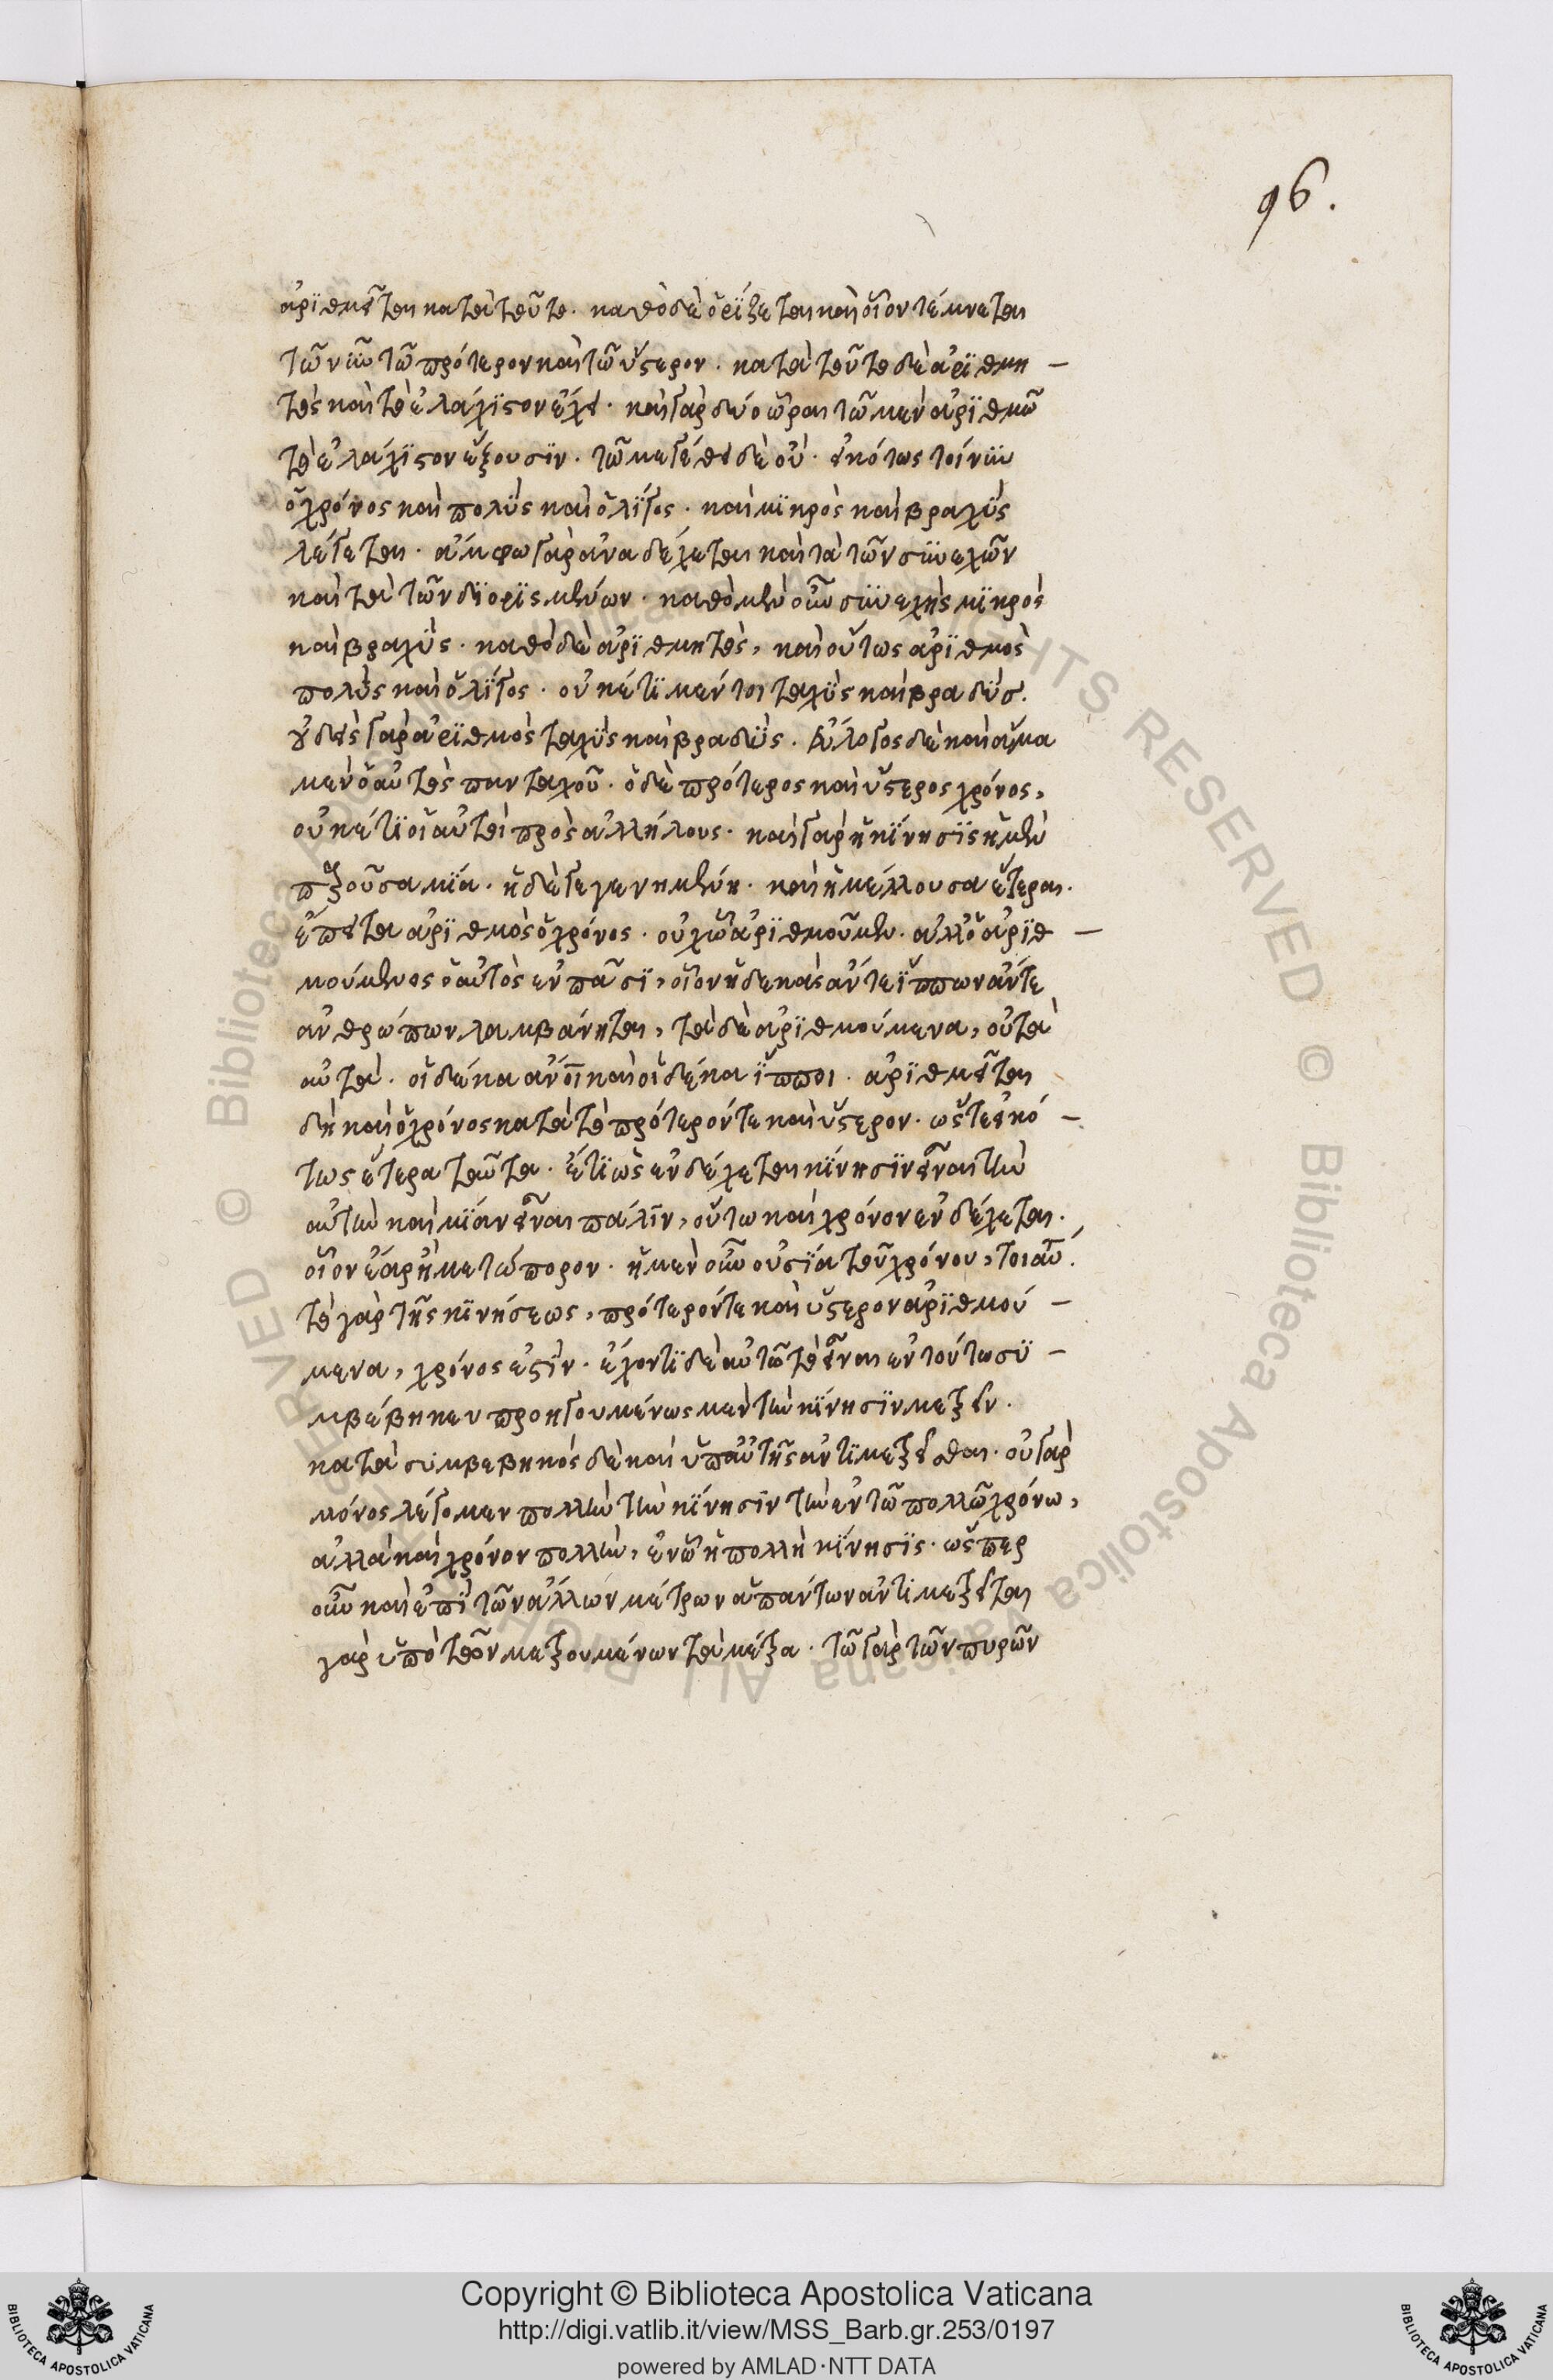 96.
ἀριθμεῖται κατὰ τοῦτο. καθὸ δὲ ὁρίζεται καὶ οἷον τέμνεται
τῷ νῦν τῷ πρότερον καὶ τῷ ὕστερον. κατὰ τοῦτο δὲ ἀριθμη-
τὸς καὶ τὸ ἐλάχιστον ἔχει. καὶ γὰρ δύο ὧραι τῷ μὲν ἀριθμῷ
τὸ ἐλάχιστον ἕξουσιν. τῷ μεγέθει δὲ οὔ. εἰκότως τοίνυν
ὁ χρόνος καὶ πολὺς καὶ ὀλίγος. καὶ μικρὸς καὶ βραχὺς
λέγεται. ἄμφω γὰρ ἀναδέχεται καὶ τὰ τῶν συνεχῶν
καὶ τὰ τῶν διορισμένων. καθὸ μὲν οὖν συνεχὴς μικρὸς
καὶ βραχύς. καθὸ δὲ ἀριθμητὸς, καὶ οὕτως ἀριθμὸς
πολὺς καὶ ὀλίγος. οὐκέτι μέντοι ταχὺς καὶ βραδύς.
οὐδεὶς γὰρ ἀριθμὸς ταχὺς καὶ βραδύς. εὔλογος δὲ καὶ ἅμα
μὲν ὁ αὐτὸς πανταχοῦ. ὁ δὲ πρότερος καὶ ὕστερος χρόνος,
οὐκέτι οἱ αὐτοὶ πρὸς ἀλλήλους. καὶ γὰρ ἡ κίνησις ἡ μὲν
παροῦσα μία. ἡ δὲ γεγενημένη. καὶ ἡ μέλλουσα ἕτεραι.
ἔπειτα ἀριθμὸς ὁ χρόνος. οὐχ ᾧ ἀριθμοῦμεν. ἀλλ' ὁ ἀριθ-
μούμενος ὁ αὐτὸς ἐν πᾶσι, οἷον ἡ δεκὰς ἄν τε ἵππων ἄν τε
ἀνθρώπων λαμβάνηται, τὰ δὲ ἀριθμούμενα, οὐ τὰ
αὐτά. οἱ δέκα ἄνοι καὶ οἱ δέκα ἵπποι. ἀριθμεῖται
δὴ καὶ ὁ χρόνος κατὰ τὸ πρότερόν τε καὶ ὕστερον. ὥστε εἰκό-
τως ἕτερα ταῦτα. ἔτι ὡς ἐνδέχεται κίνησιν εἶναι τὴν
αὐτὴν καὶ μίαν εἶναι πάλιν, οὕτω καὶ χρόνον ἐνδέχεται.
οἷον ἔαρ ἢ μετώπορον. ἡ μὲν οὖν οὐσία τοῦ χρόνου, τοιαύ.
τὸ γὰρ τῆς κινήσεως, πρότερόν τε καὶ ὕστερον ἀριθμού-
μενα, χρόνος ἐστίν. ἔχοντι δὲ αὐτῷ τὸ εἶναι ἐν τούτω συ-
μβέβηκεν προηγουμένως μὲν τὴν κίνησιν μετρεῖν.
κατὰ συμβεβηκός δὲ καὶ ὑπ' αὐτῆς ἀντιμετρεῖσθαι. οὐ γὰρ
μόνος λέγομεν πολλὴν τὴν κίνησιν τὴν ἐν τῷ πολλῷ χρόνω,
ἀλλὰ καὶ χρόνον πολλὺν, ἐν ᾧ ἡ πολλὴ κίνησις. ὥσπερ
οὖν καὶ ἐπὶ τῶν ἄλλων μέτρων ἁπάντων ἀντιμετρεῖται
γὰρ ὑπὸ τῶν μετρουμένων τὰ μέτρα. τῷ γὰρ τῶν πυρῶν
Copyright © Biblioteca Apostolica Vaticana
http://digi.vatlib.it/view/MSS_Barb.gr.253/0197
powered by AMLAD·NTT DATA